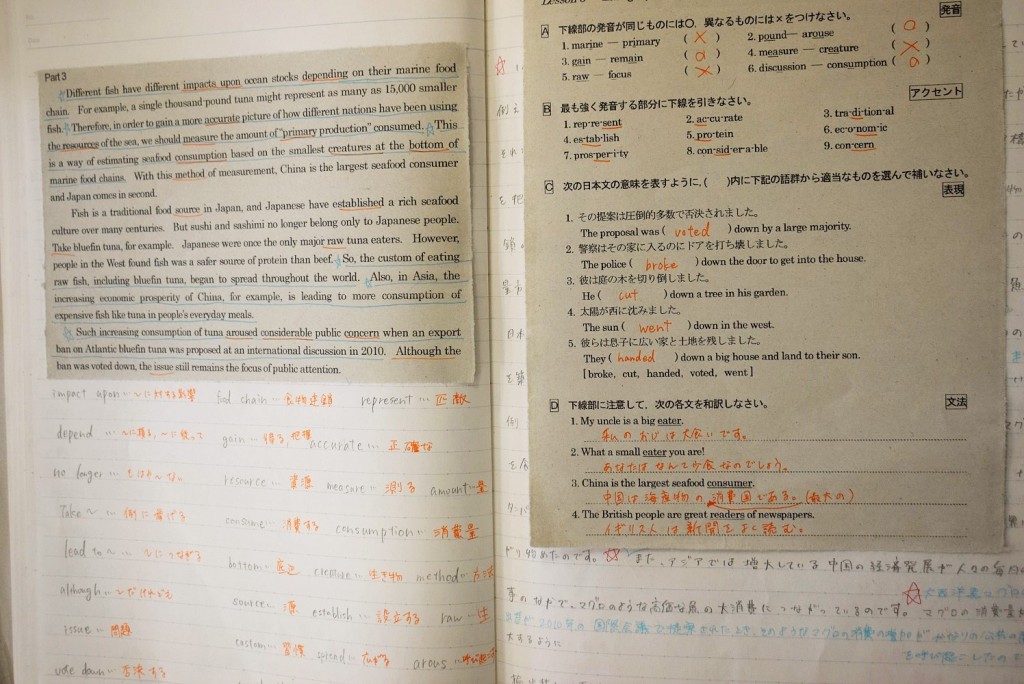 Part 3
Different fish have different impacts upon ocean stocks depending on their marine food
chain. For example, a single thousand-pound tuna might represent as many as 15,000 smaller
fish. Therefore, in order to gain a more accurate picture of how different nations have been using
the resources of the sea, we should measure the amount of "primary production" consumed. This
is a way of estimating seafood consumption based on the smallest creatures at the bottom of
marine food chains. With this method of measurement, China is the largest seafood consumer
and Japan comes in second.
Fish is a traditional food source in Japan, and Japanese have established a rich seafood
culture over many centuries. But sushi and sashimi no longer belong only to Japanese people.
Take bluefin tuna, for example. Japanese were once the only major raw tuna eaters. However,
people in the West found fish was a safer source of protein than beef. So, the custom of eating
raw fish, including bluefin tuna, began to spread throughout the world. Also, in Asia, the
increasing economic prosperity of China, for example, is leading to more consumption of
expensive fish like tuna in people's everyday meals.
Such increasing consumption of tuna aroused considerable public concern when an export
ban on Atlantic bluefin tuna was proposed at an international discussion in 2010. Although the
ban was voted down, the issue still remains the focus of public attention.
impact upon… ～に対する影響 food chain… 食物連鎖 represent… 匹敵
depend… ～に頼る、～に従って gain… 得る, 把握 accurate… 正確な
no longer… もはや～ない resource… 資源 measure… 測る amount… 量
Take ～… 例に挙げる consume… 消費する consumption… 消費量
lead to ～… ～につながる bottom… 底辺 creature… 生き物 method… 方法
although… ～だけれども source… 源 establish… 設立する raw… 生
issue… 問題 custom… 習慣 spread… 広がる arous…
vote down… 否決する
発音
A 下線部の発音が同じものには○、異なるものには×をつけなさい。
1. marine — primary ( × ) 2. pound — arouse ( ○ )
3. gain — remain ( ○ ) 4. measure — creature ( × )
5. raw — focus ( × ) 6. discussion — consumption ( ○ )
アクセント
B 最も強く発音する部分に下線を引きなさい。
1. rep·re·sent 2. ac·cu·rate 3. tra·di·tion·al
4. es·tab·lish 5. pro·tein 6. ec·o·nom·ic
7. pros·per·i·ty 8. con·sid·er·a·ble 9. con·cern
C 次の日本文の意味を表すように、( )内に下記の語群から適当なものを選んで補いなさい。
表現
1. その提案は圧倒的多数で否決されました。
The proposal was ( voted ) down by a large majority.
2. 警察はその家に入るのにドアを打ち壊しました。
The police ( broke ) down the door to get into the house.
3. 彼は庭の木を切り倒しました。
He ( cut ) down a tree in his garden.
4. 太陽が西に沈みました。
The sun ( went ) down in the west.
5. 彼らは息子に広い家と土地を残しました。
They ( handed ) down a big house and land to their son.
[ broke, cut, handed, voted, went ]
D 下線部に注意して、次の各文を和訳しなさい。 文法
1. My uncle is a big eater.
私のおじは大食いです。
2. What a small eater you are!
あなたはなんて少食なのでしょう。
3. China is the largest seafood consumer.
中国は海産物の消費国である。(最大の)
4. The British people are great readers of newspapers.
イギリス人は新聞をよく読む。
めたのです。☆また、アジアでは増大している中国の経済発展が人々の毎日の
事のなかで、マグロのような高価な魚の大消費につながっているのです。